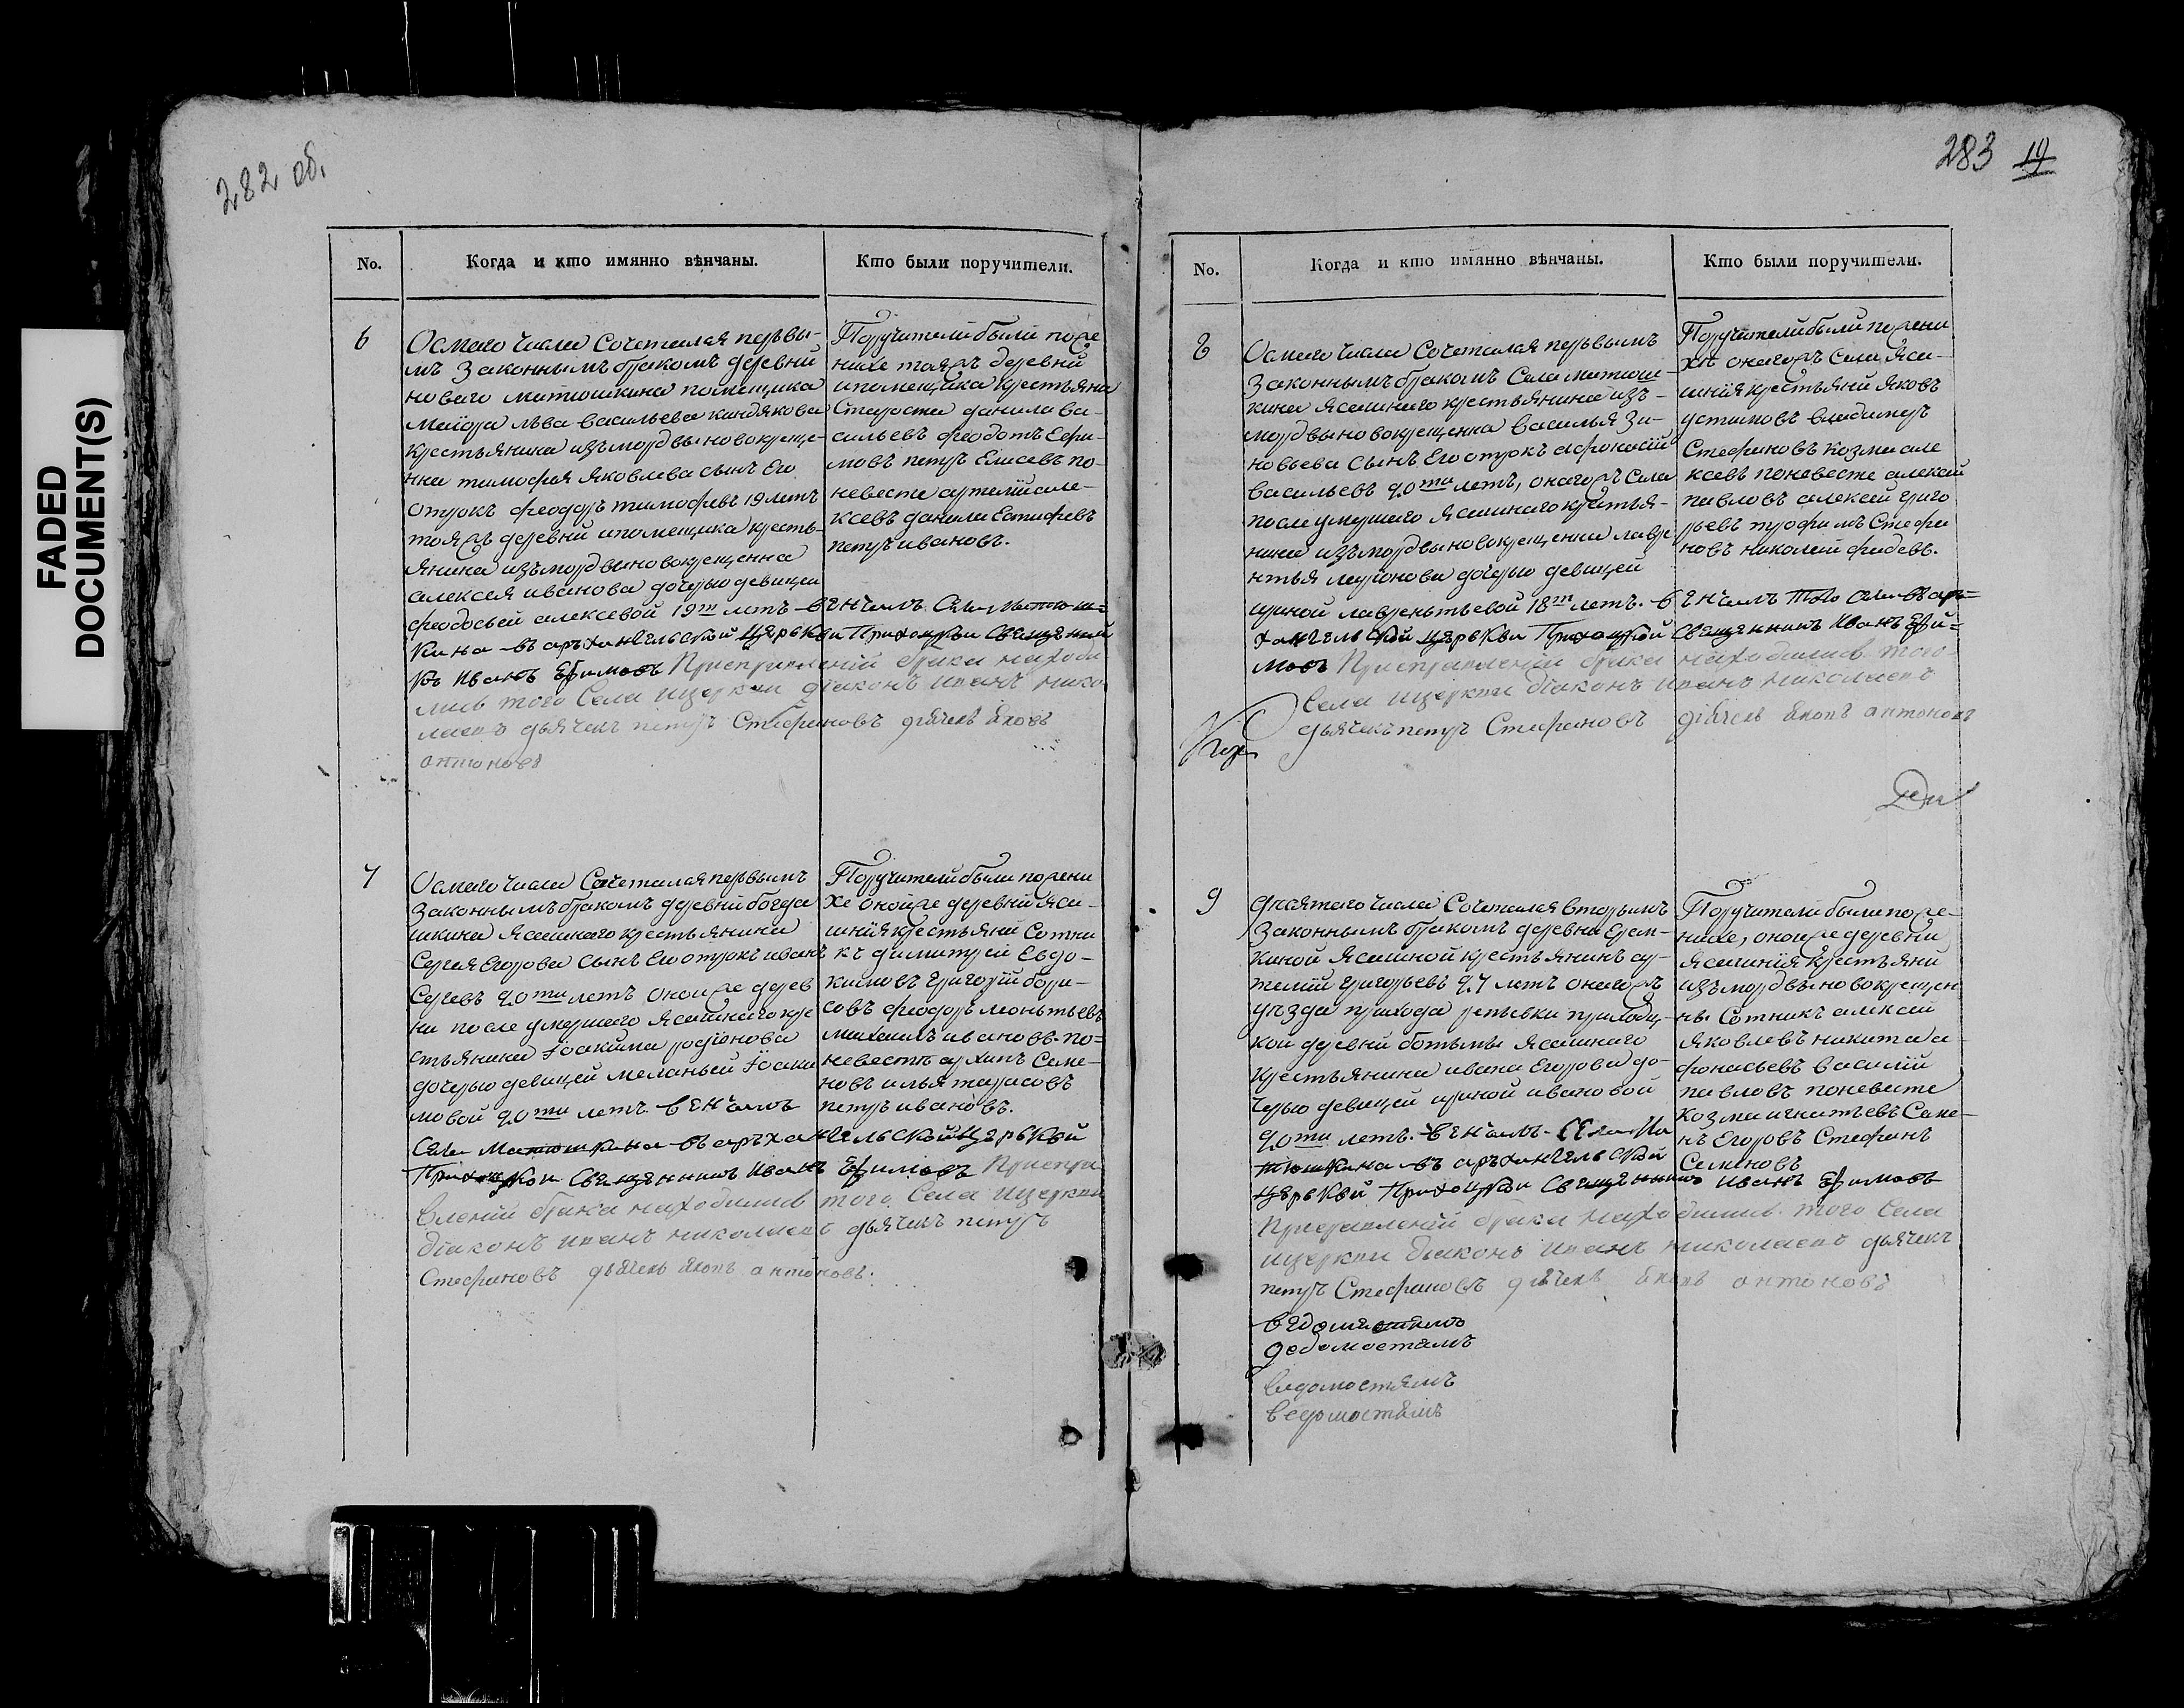 FADED
DOCUMENT(S)
282 об.
No.
Когда и кто имянно вѣнчаны.
Кто были поручители.
6
Осмаго числа Сочетался первы-
мъ законнымъ бракомъ деревни
новаго матюшкина помещика
маиора льва васильева киндякова
крестьянина изъ мордвы новокреще-
нна тимофея яковлева сынъ Его
отрокъ феодоръ тимофеевъ 19 летъ
тояжъ деревни и помещика кресть-
янина изъ мордвы новокрещенна
алексея иванова дочерью девицей
феодосьей алексевой 19ти летъ венчалъ Села матюш=
кина въ архангельской церькви Приходской Священни
къ Иванъ Ефимовъ При справлении брака находи
лись того Села и церкви дiаконъ иванъ нико
лаевъ дьячекъ петръ Стефановъ дьячекъ яковъ
антоновъ
Поручители были по же
нихе тояжъ деревни
и помещика крестьяна
Староста данила ва-
сильевъ феодотъ Ефи-
мовъ петръ Елисевъ по-
невесте артемiй але-
ксевъ данила Естифевъ
петръ ивановъ.
7
Осмаго числа Сочетался первымъ
законнымъ бракомъ деревни богда
шкина Ясашнаго крестьянина
Сергея Егорова Сынъ Его отрокъ иванъ
Сергевъ 20ти летъ оной же дерев
ни после умершаго Ясашнаго кре
стьянина Iоакима родiонова
дочерью девицей меланьей Iоаки
мовой 20ти летъ венчалъ
Села Матюшкина въ архангельской церькви
Приходской Священникъ Иванъ Ефимовъ При спра
влении брака находились того Села и церкви
дiаконъ иванъ николаевъ дьячекъ петръ
Стефановъ дьячекъ яковъ антоновъ.
Поручители были по жени
хе оной же деревни Яса-
шнiя крестьяни Сотни
къ димитрей Евдо-
кимовъ григорiй бори-
совъ феодоръ леоньтьевъ
михаилъ ивановъ. по=
невесте архипъ Семе-
новъ илья тарасовъ
петръ ивановъ.
283 19
No.
Когда и кто имянно вѣнчаны.
Кто были поручители.
8
Осмаго числа Сочетался первымъ
законнымъ бракомъ Села матюш-
кина Ясашнаго крестьянина изъ-
мордвы новокрещенна василья Зи-
новьева Сынъ Его отрокъ афонасiй
васильевъ 20ти летъ, онагожъ Села
после умершаго Ясашнаго крестья-
нина изъ мордвы новокрещенна лавре
нтья ларiонова дочерью девицей
ириной лавреньтьевой 18ти летъ. венчалъ того Села въ арь=
хангельской церькви Приходской Священникъ Иванъ Ефи=
мовъ При справлении брака находились того
Села и церкви дiаконъ иванъ николаевъ
дьячекъ петръ Стефановъ дьячекъ яковъ антоновъ
Поручители были по жени
хе онагожъ Села Яса-
шнiя крестьяни Яковъ
устимовъ владимеръ
Стефановъ козма але
ксевъ по невесте алексей
павловъ алексей григо
рьевъ трофимъ Стефа
новъ николай фадевъ.
9
дватого числа Сочетался вторымъ
законнымъ бракомъ деревни Ерем-
киной Ясашной крестьянинъ ар-
темiй григорьевъ 27 летъ онагожъ
уезда прихода репьевки приходц-
кой деревни ботьмы Ясашнаго
крестьянина ивана Егорова до-
черью девицей ириной ивановой
20ти летъ. венчалъ Села Ма
тюшкина въ архангельской
церькви Приходской Священникъ Иванъ Ефимовъ
При справлении брака находились того Села
и церкви дiаконъ иванъ николаевъ дьячекъ
петръ Стефановъ дьячекъ яковъ антоновъ
ведомостямъ
ведомостямъ
ведомостямъ
ведомостямъ
Поручители были по же-
нихе, оной же деревни
Ясашнiя крестьяни
изъ мордвы новокрещен
ны Сотникъ алексей
Яковлевъ никита а-
фонасьевъ василiй
павловъ по невесте
козма игнатьевъ Саве-
нъ Егоровъ Стефанъ
Семеновъ